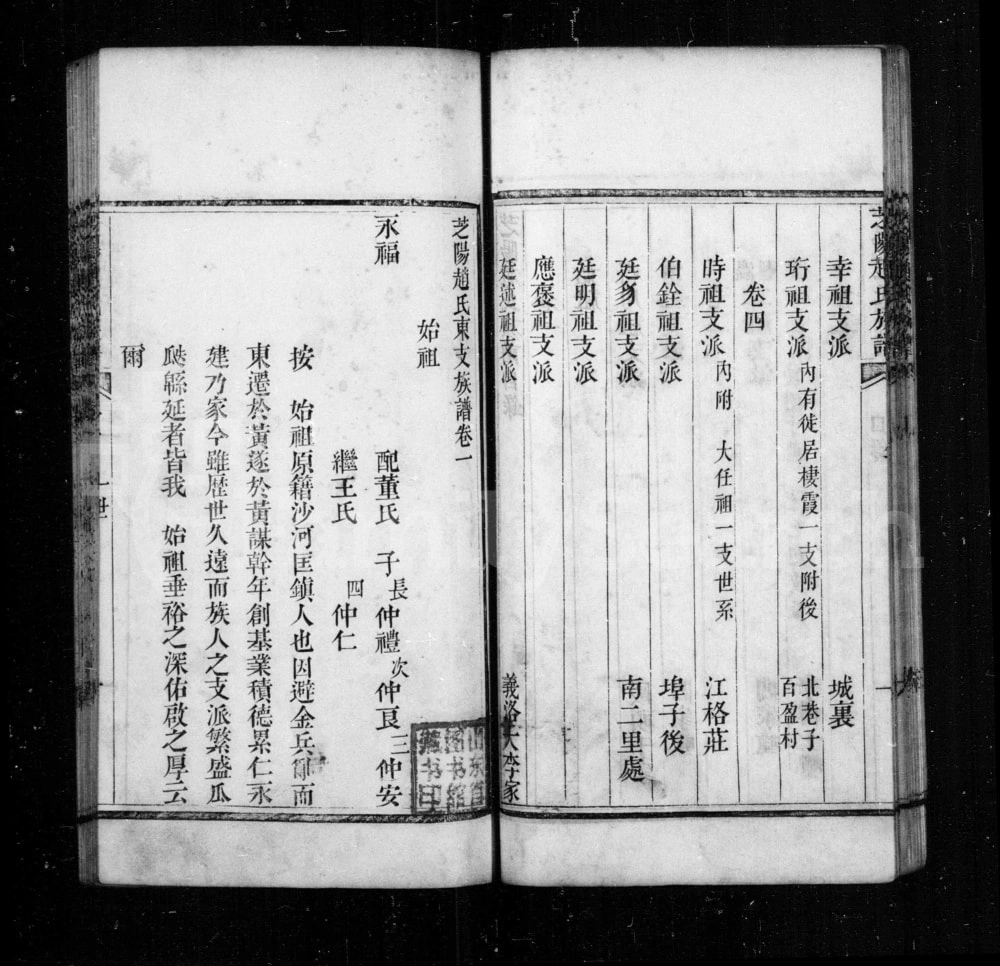 芝陽趙氏族譜
幸祖支派 城裏
珩祖支派 內有徙居棲霞一支附後 北巷子 百盈村
卷四
時祖支派 內附 大任祖一支世系 江格莊
伯銓祖支派 埠子後
廷身祖支派 南二里處
廷明祖支派
應褒祖支派
廷蓮祖支派 義洛 李家
芝陽趙氏東支族譜卷一
始祖
永福 配董氏 子長仲禮次仲良三仲安
繼王氏 四仲仁
按 始祖原籍沙河匡鎮人也因避金兵亂而
東遷於黃遂於黃謀幹年創基業積德累仁永
建乃家今雖歷世久遠而族人之支派繁盛瓜
瓞緜延者皆我 始祖垂裕之深佑啟之厚云
爾
一世
山东省
图书馆
藏书印